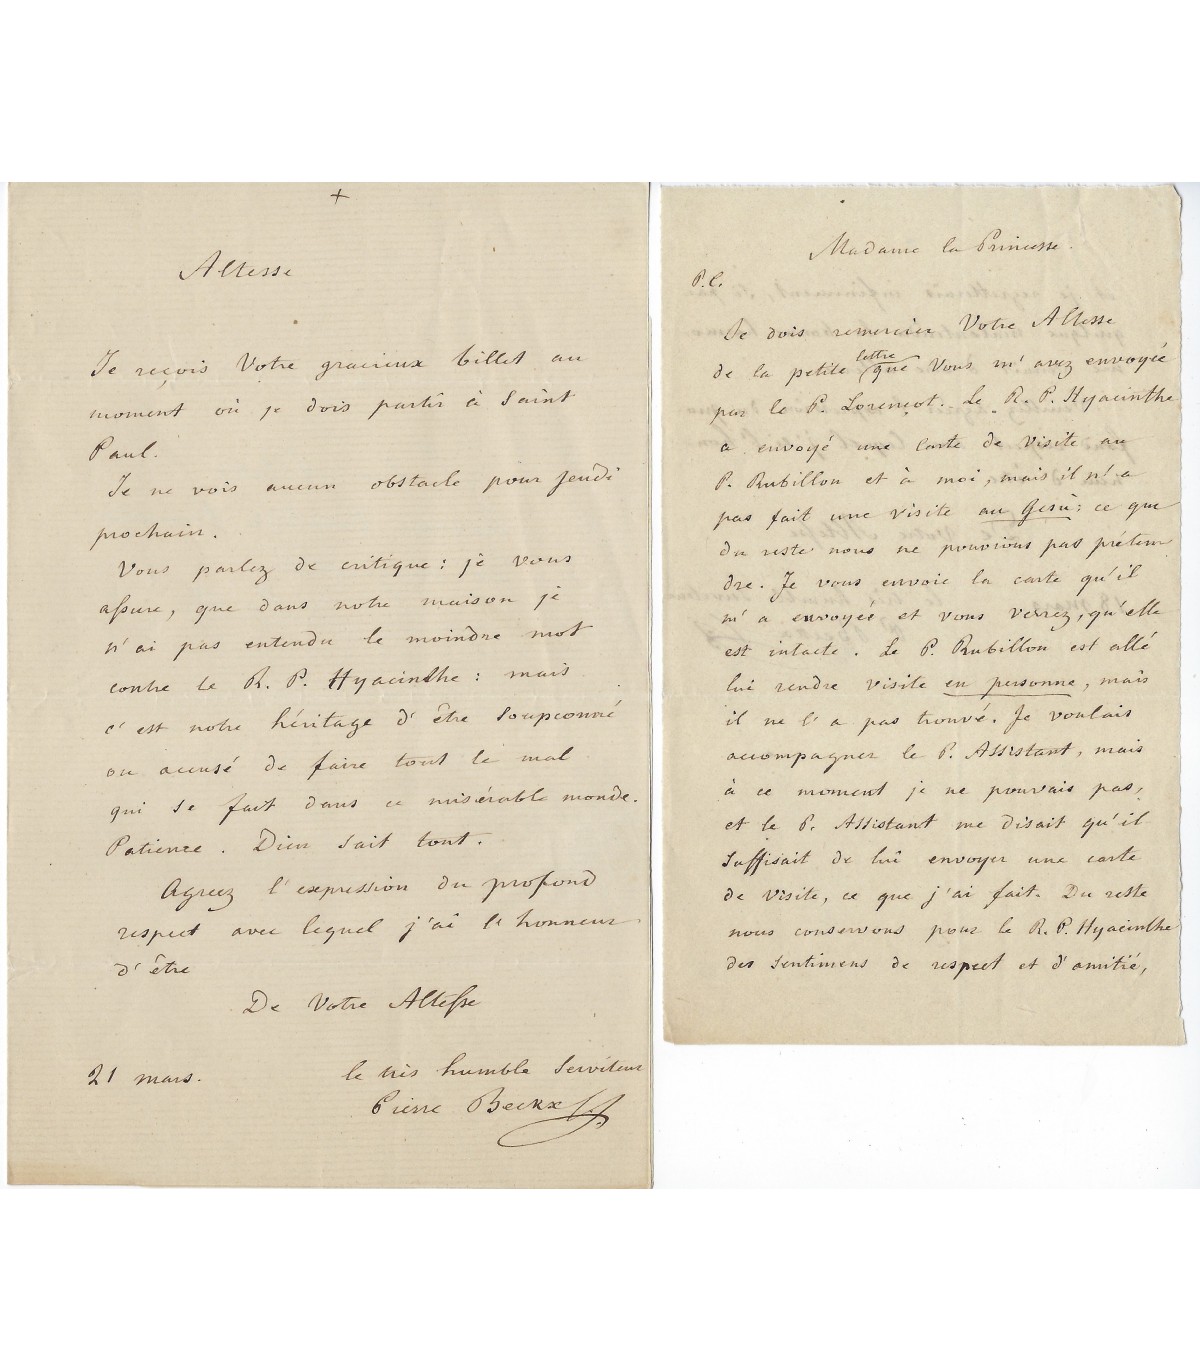 +
Altesse
Je reçois Votre gracieux billet au
moment où je dois partir à Saint
Paul.
Je ne vois aucun obstacle pour Jeudi
prochain.
Vous parlez de critique: je vous
assure, que dans notre maison je
n'ai pas entendu le moindre mot
contre le R. P. Hyacinthe: mais
c'est notre héritage d'être soupconné
ou accusé de faire tout le mal
qui se fait dans ce misérable monde.
Patience. Dieu sait tout.
Agreez l'expression du profond
respect avec lequel j'ai l'honneur
d'être
De Votre Altesse
21 mars.
le très humble Serviteur
Pierre Beckx
Madame la Princesse.
P.C.
Je dois remercier Votre Altesse
de la petite lettre que Vous m'avez envoyée
par le P. Lorençot. Le R. P. Hyacinthe
a envoyé une carte de visite au
P. Rubillon et à moi, mais il n'a
pas fait une visite au Gesù: ce que
du reste nous ne pouvions pas préten
dre. Je vous envoie la carte qu'il
m'a envoyée et vous verrez, qu'elle
est intacte. Le P. Rubillon est allé
lui rendre visite en personne, mais
il ne l'a pas trouvé. Je voulais
accompagner le P. Assistant, mais
à ce moment je ne pouvais pas,
et le P. Assistant me disait qu'il
suffisait de lui envoyer une carte
de visite, ce que j'ai fait. Du reste
nous conservons pour le R. P. Hyacinthe
des sentimens de respect et d'amitié,